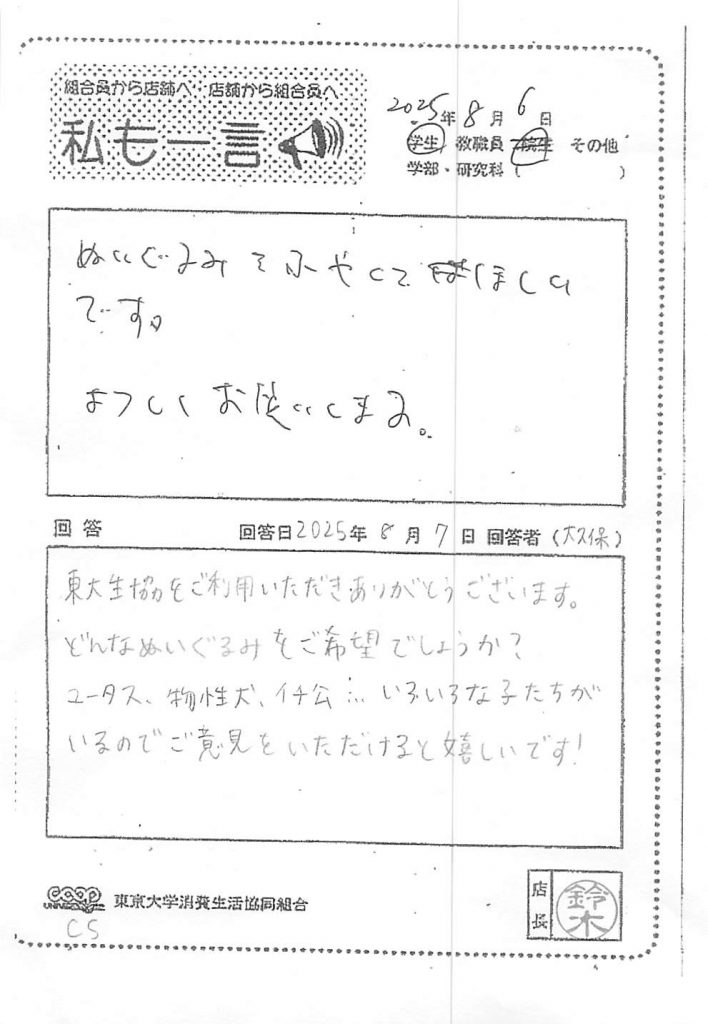 組合員から店舗へ 店舗から組合員へ
私も一言
2025年8月6日
学生 教職員 院生 その他
学部・研究科( )
ぬいぐるみをふやしてほしい
です。
よろしくお願いします。
回答 回答日2025年8月7日 回答者(大久保)
東大生協をご利用いただきありがとうございます。
どんなぬいぐるみをご希望でしょうか?
ユータス、物性犬、イチ公…いろいろな子たちが
いるのでご意見をいただけると嬉しいです!
coop 東京大学消費生活協同組合
CS
店長
鈴木